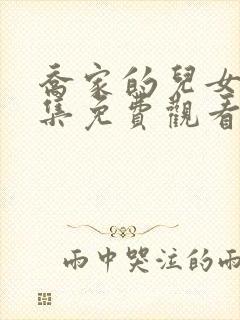 喬家的兒女
集免費觀看
雨中哭注的雨